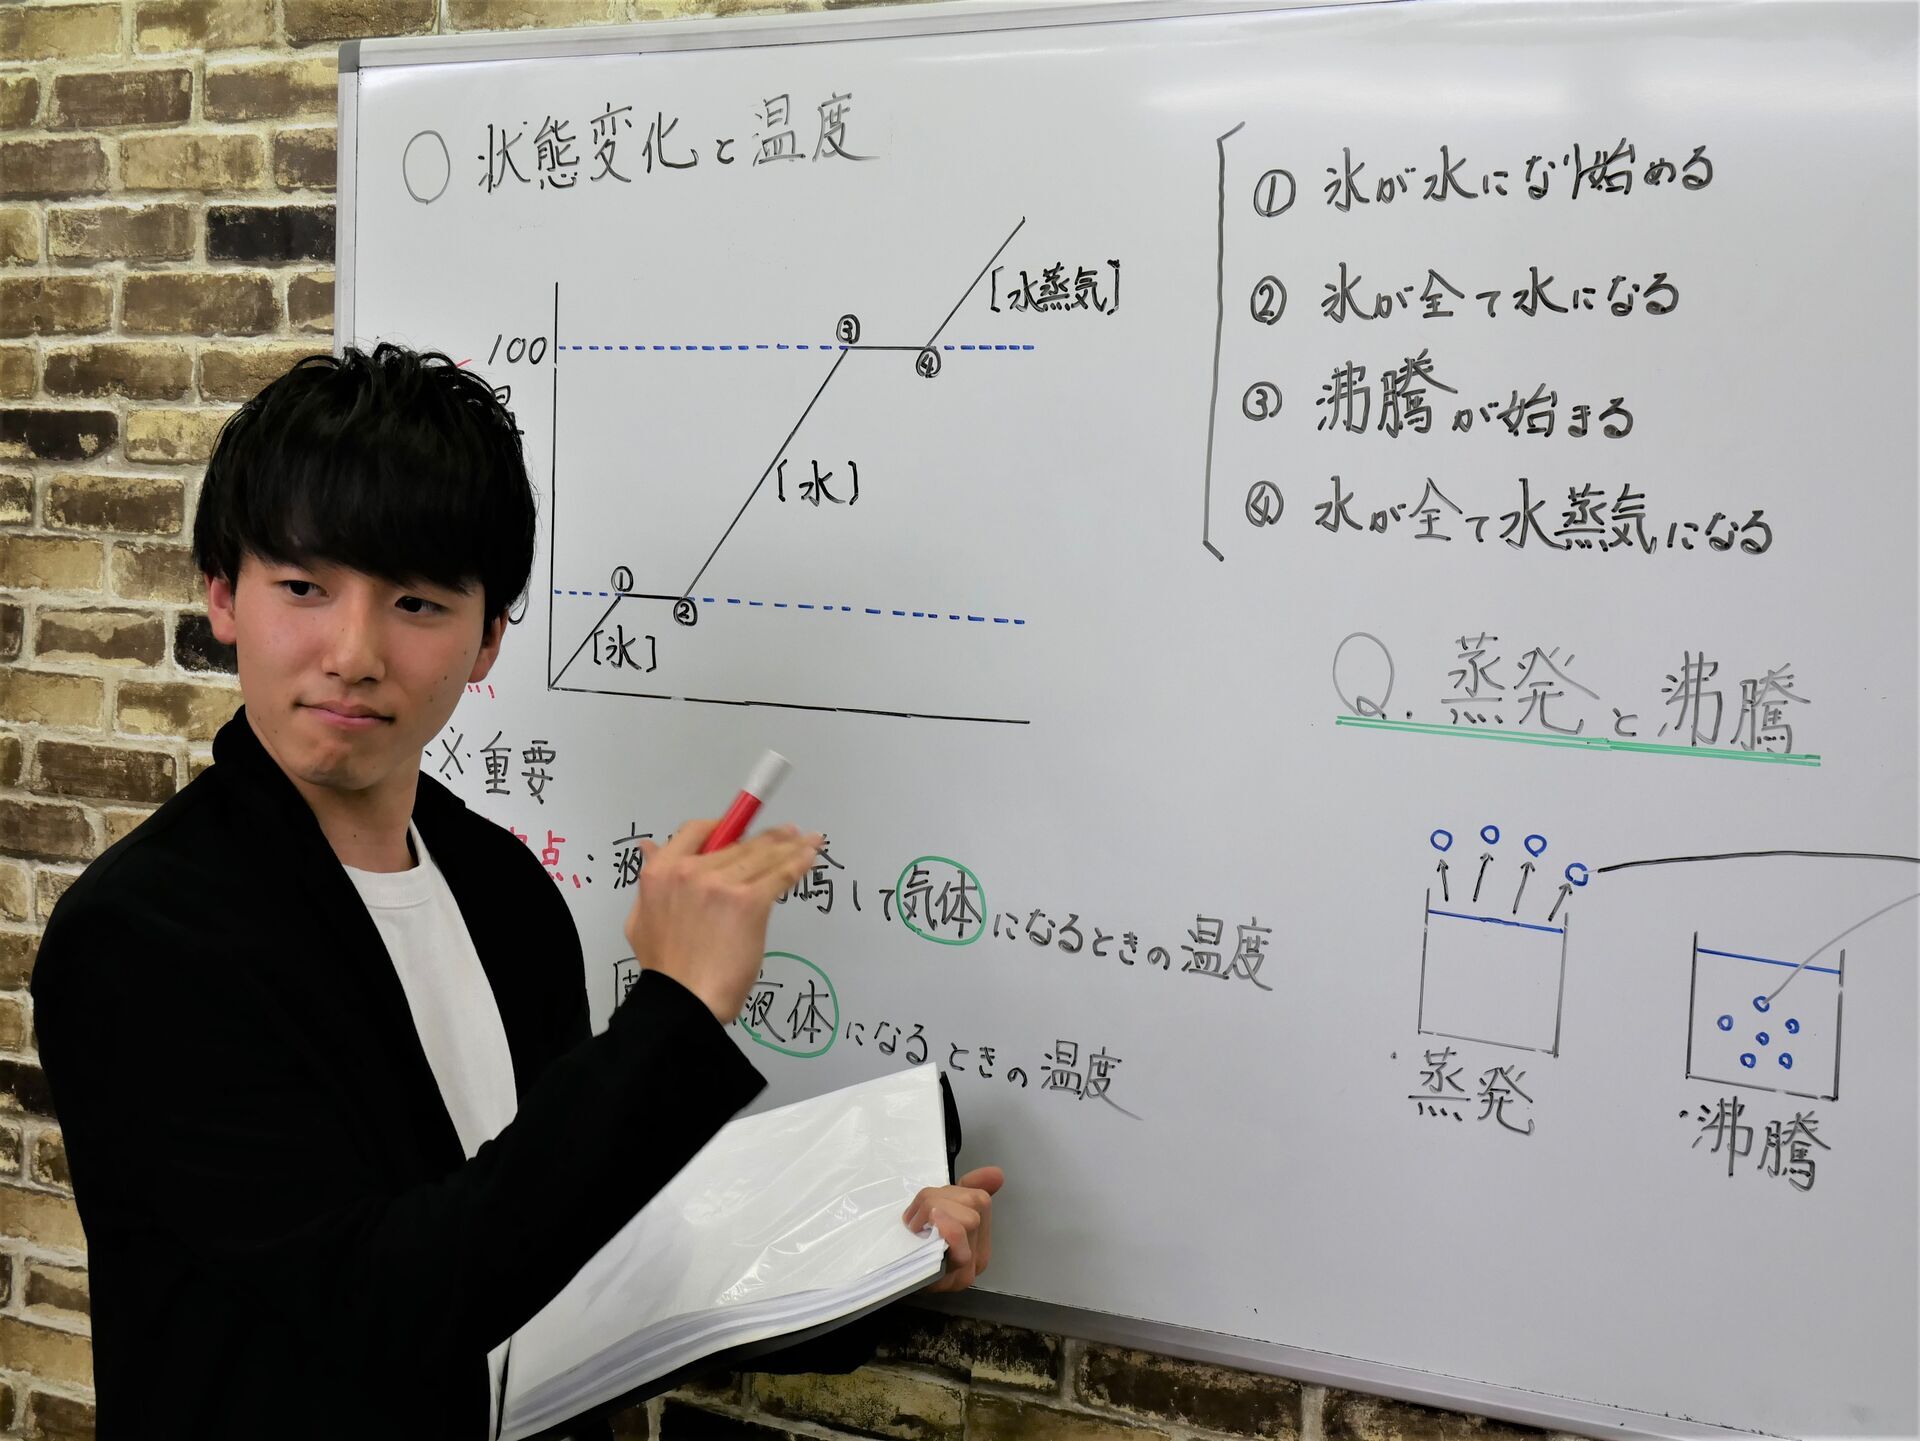 ○ 状態変化と温度
100
③
④
[水蒸気]
[水]
①
②
[氷]
① 氷が水になり始める
② 氷が全て水になる
③ 沸騰が始まる
④ 水が全て水蒸気になる
※重要
点: 液 騰して気体になるときの温度
液体になるときの温度
Q. 蒸発と沸騰
・蒸発
・沸騰